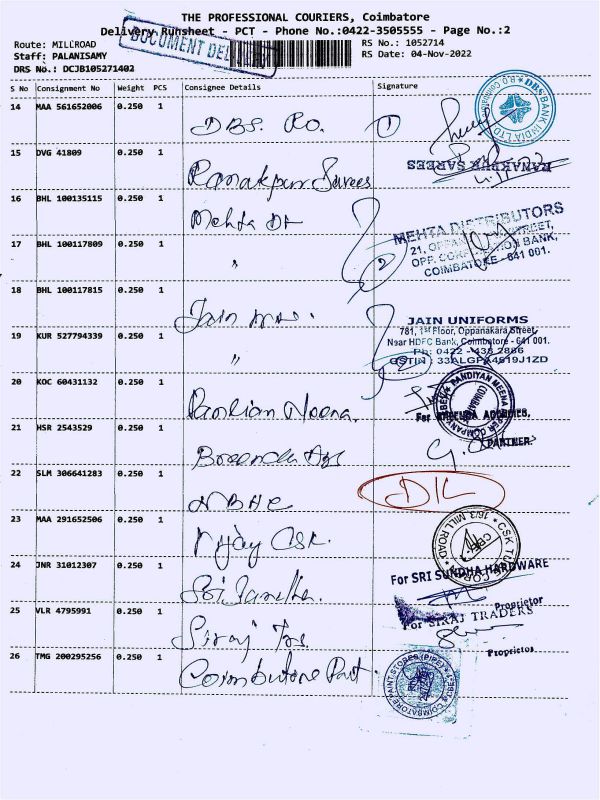 THE PROFESSIONAL COURIERS, Coimbatore
Delivery Runsheet - PCT - Phone No.:0422-3505555 - Page No.:2
DOCUMENT
Route: MILLROAD
RS No.: 1052714
Staff: PALANISAMY
RS Date: 04-Nov-2022
DRS No.: DCJB105271402
S No Consignment No Weight PCS Consignee Details Signature
14 MAA 561652006 0.250 1 DBS. RO. 1
DBS BANK INDIA LTD
15 DVG 41809 0.250 1 Ranakpur Sarees
RANAKPUR SAREES
16 BHL 100135115 0.250 1 Mehta
MEHTA DISTRIBUTORS
17 BHL 100117809 0.250 1 〃 2
COIMBATORE - 641 001.
18 BHL 100117815 0.250 1 Jain
JAIN UNIFORMS
781, 1st Floor, Oppanakara Street,
Near HDFC Bank, Coimbatore - 641 001.
19 KUR 527794339 0.250 1 〃 2
20 KOC 60431132 0.250 1 Pandian Meena
PANDIYAN MEENA
21 HSR 2543529 0.250 1
PARTNER.
22 SLM 306641283 0.250 1 NBHC DIL
23 MAA 291652506 0.250 1 Vijay CSK.
16/3 MILL ROAD
24 JNR 31012307 0.250 1 Sri Sundha.
For SRI SUNDHA HARDWARE
Proprietor
25 VLR 4795991 0.250 1 Siraj Trs
For SIRAJ TRADERS
Proprietor
26 TMG 200295256 0.250 1 Coimbatore Paint.